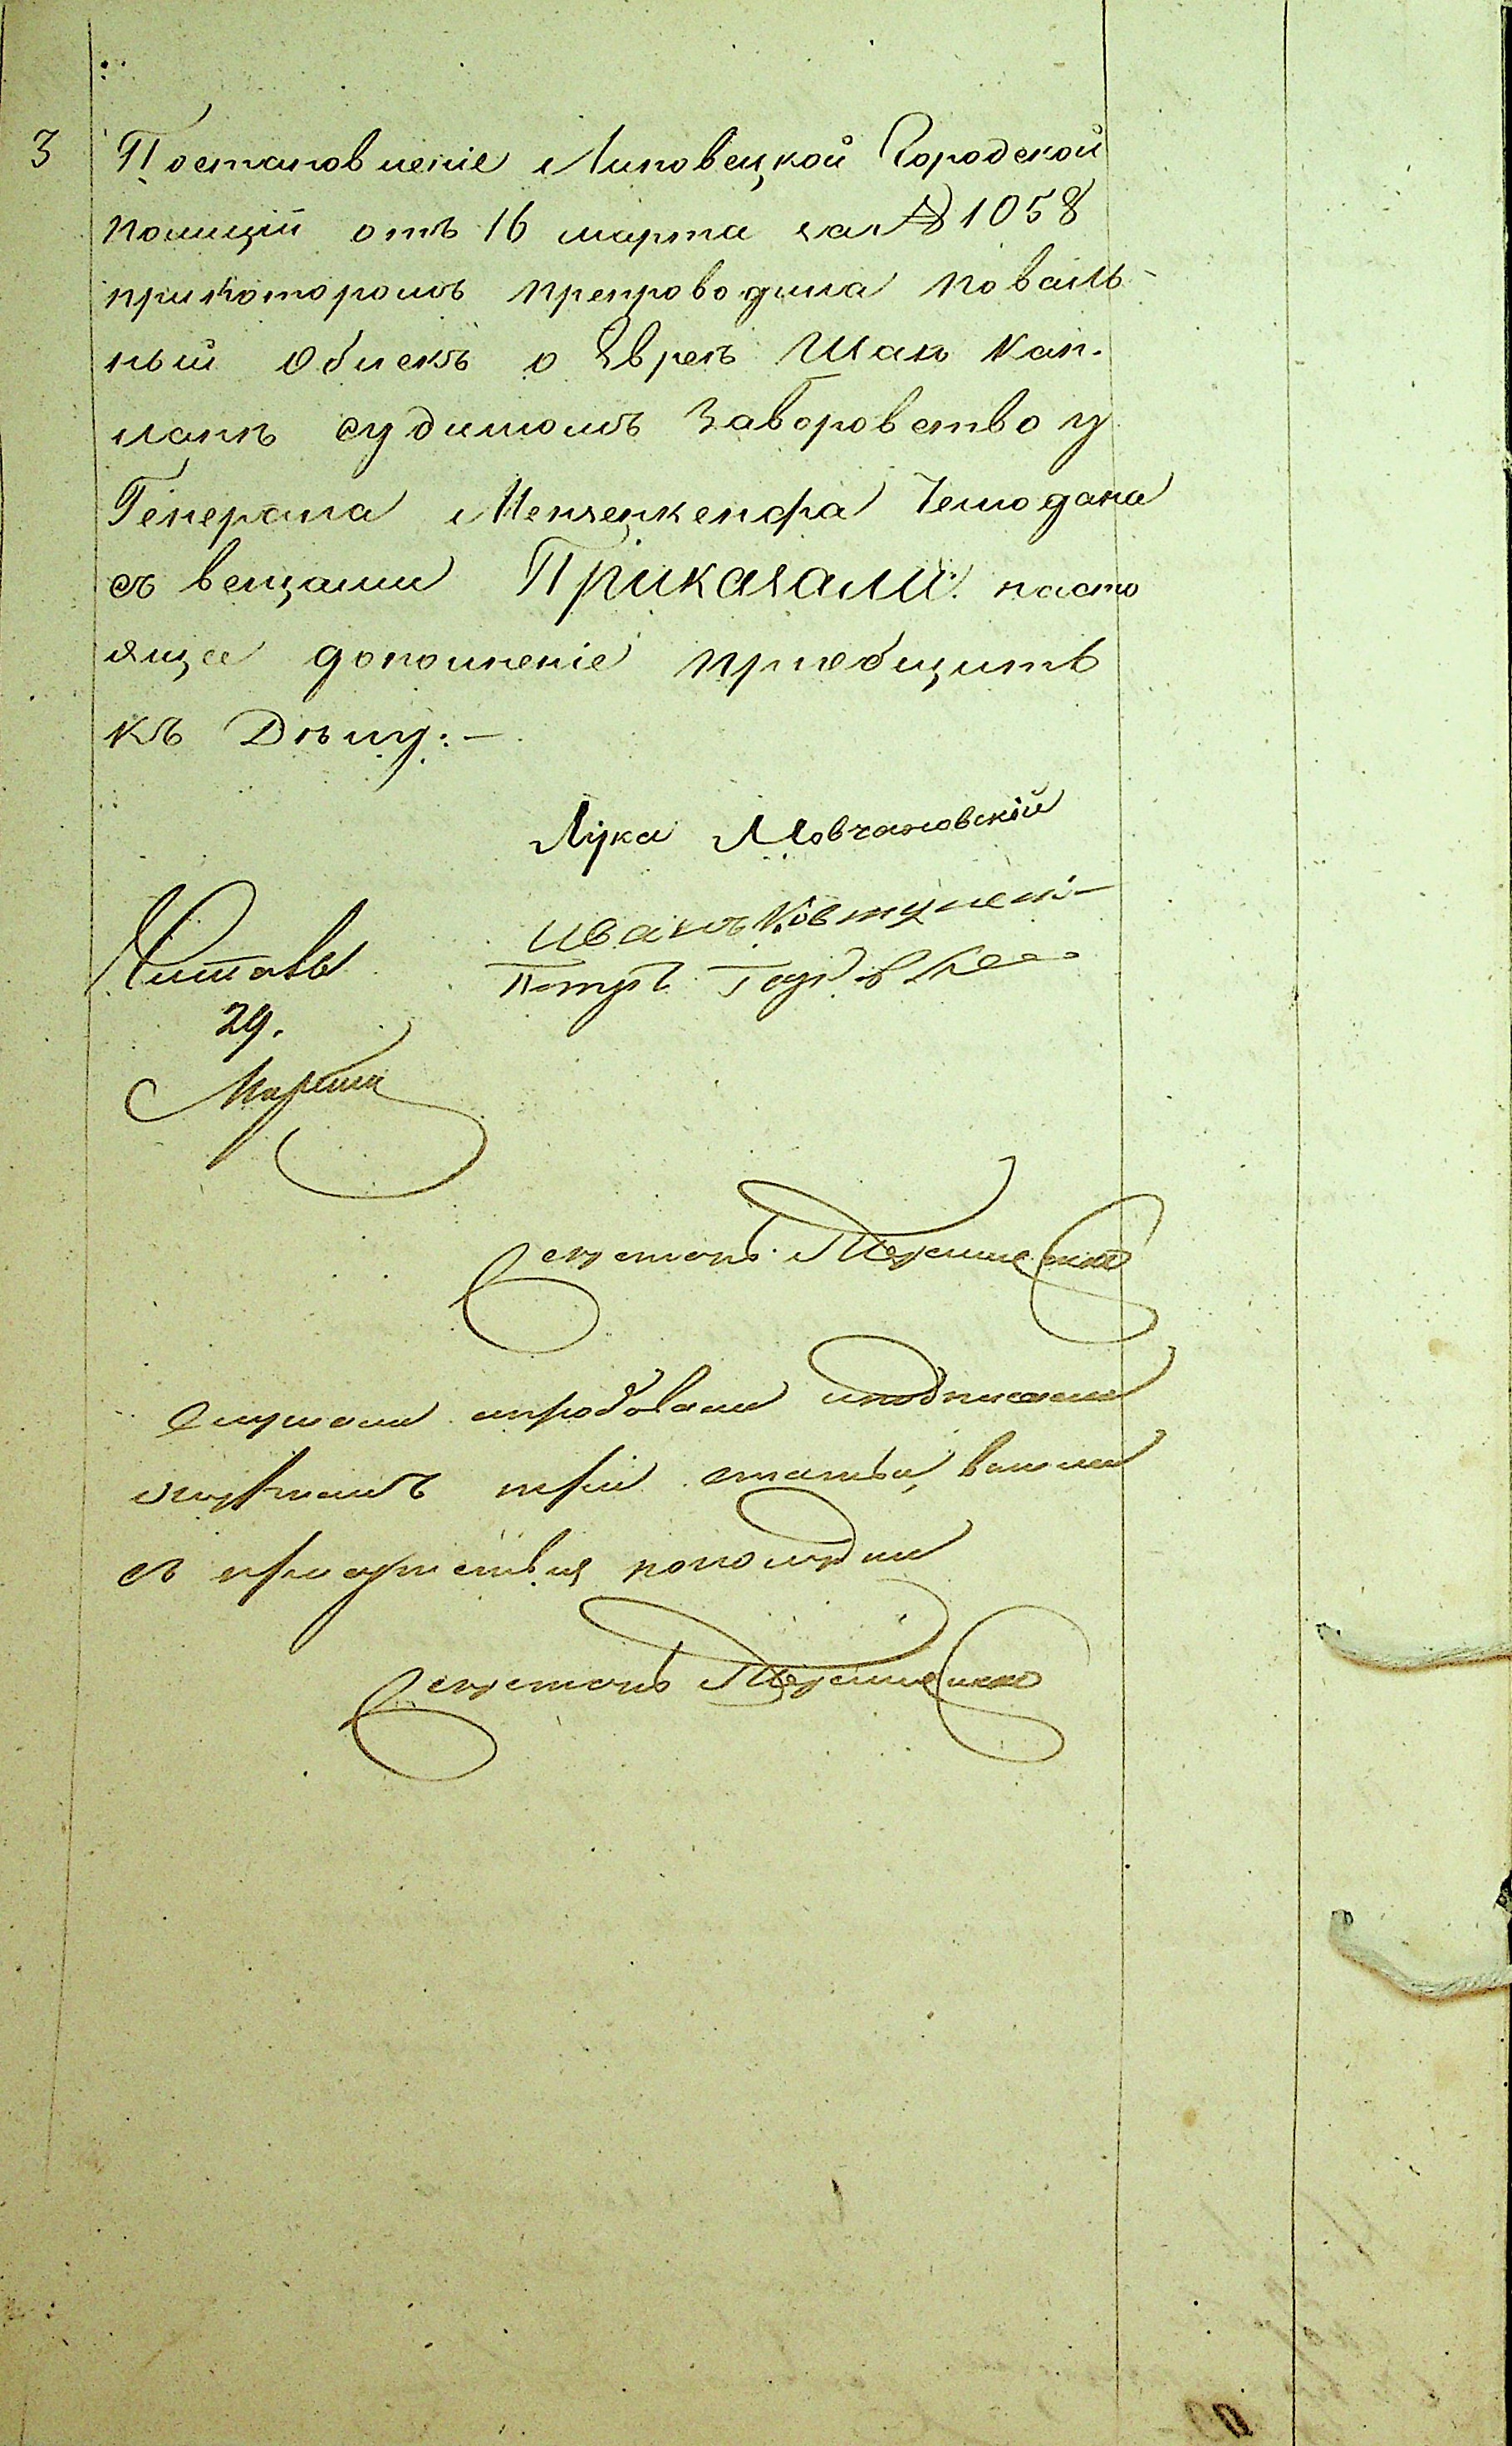 3 Постановленіе Липовецкой Городской
Полиціи отъ 16 марта за № 1058
прикоторомъ препроводила поваль-
ный обискъ о Евреѣ Шаѣ Кап-
ланѣ судимомъ Заворовство у
Генерала Менгенкенфа Чемодана
съ вещами Приказали: насто
ящее дополненіе приобщить
къ Дѣлу:—
Лука Мовчановскій
Иванъ Ковтуненко
Петръ
Читалъ
29.
Марта
Секретарь
Слушали апробовали иподписали
журналъ три статьи, вышли
съ присутствія пополудни
Секретарь